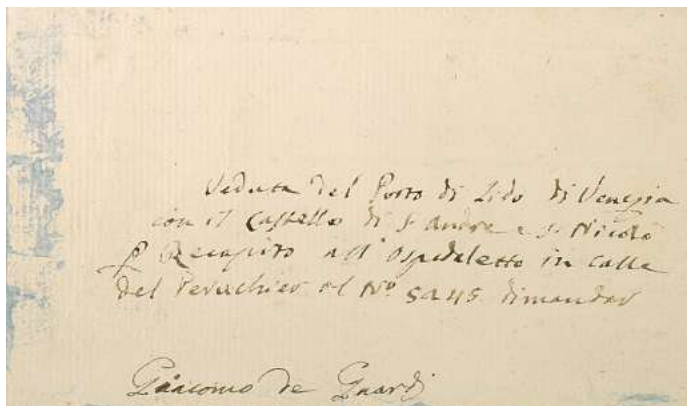 Veduta del Porto di Lido di Venezia
con il Castello di S. Andrea e S. Nicolò
P Recapito all'Ospedaletto in Calle
del Peruchier al No 5245 dimandar
Giacomo de Guardi